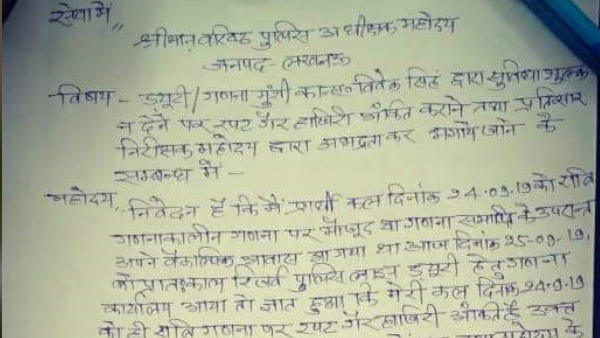 सेवा में,,
श्रीमान वरिष्ठ पुलिस अधीक्षक महोदय
जनपद- लखनऊ
विषय - ड्यूटी/गणना मुंशी का०स० विवेक सिंह द्वारा सुविधा शुल्क
न देने पर रपट गैर हाजिरी अंकित कराने तथा प्रतिसार
निरीक्षक महोदय द्वारा अभद्रता कर भगाये जाने के
सम्बन्ध में -
महोदय,, निवेदन है कि मैं प्रार्थी कल दिनांक 24-09-19 को रात्रि
गणनाकालीन गणना पर मौजूद था गणना समाप्ति के उपरान्त
अपने वैकल्पिक आवास आ गया था आज दिनांक 25-09-19,
को प्रातःकाल रिजर्व पुलिस लाइन ड्यूटी हेतु गणना
कार्यालय आया तो ज्ञात हुआ कि मेरी कल दिनांक 24-9-19
को ही रात्रि गणना पर रपट गैर हाजिरी अंकित है उक्त
महोदय के